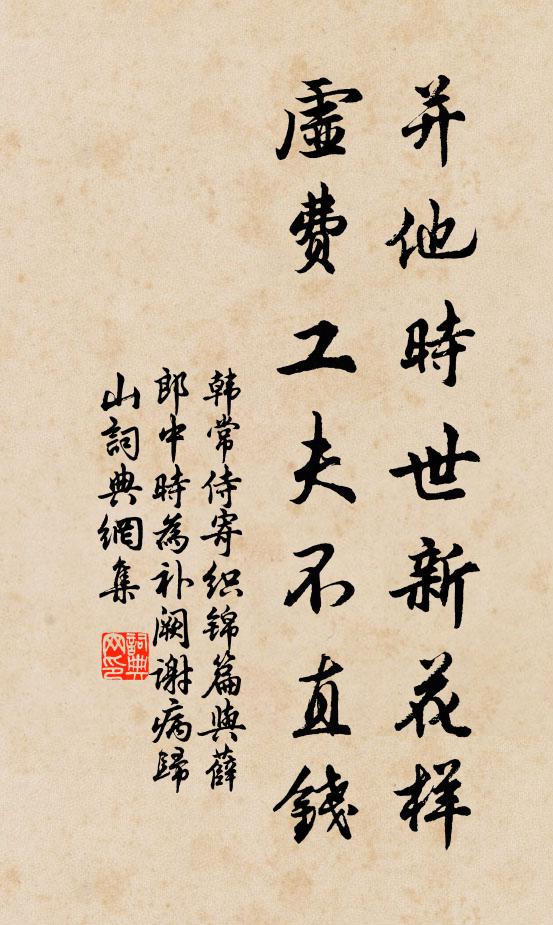 并他時世新花样
虛費工夫不直錢
韩常侍寄织锦篇與薛
郎中時為补阙謝病歸
山詞典網集
詞典网印